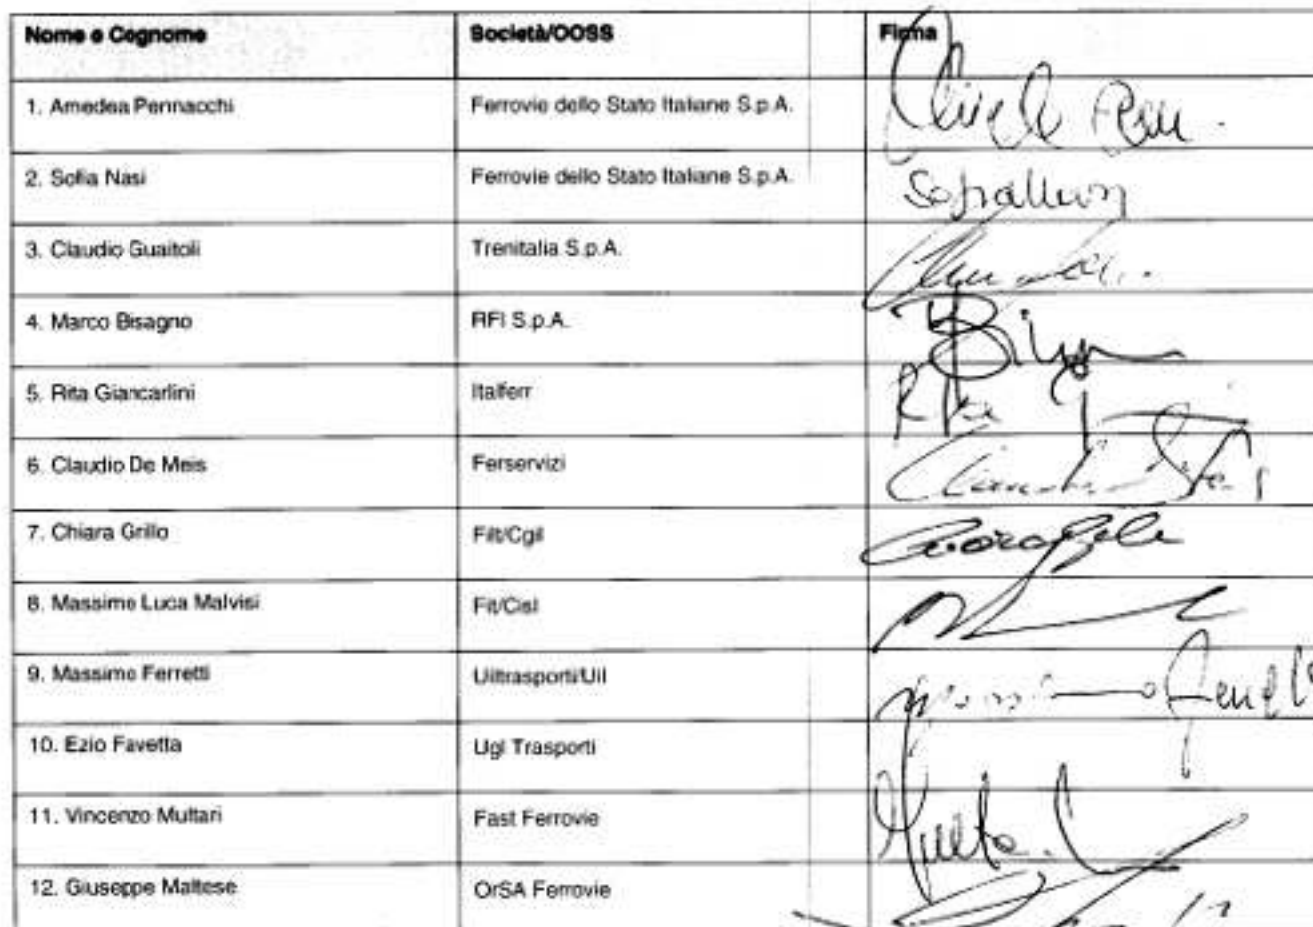 Nome e Cognome Società/OOSS Firma
1. Amedea Pennacchi Ferrovie dello Stato Italiane S.p.A.
2. Sofia Nasi Ferrovie dello Stato Italiane S.p.A.
3. Claudio Guaitoli Trenitalia S.p.A.
4. Marco Bisagno RFI S.p.A.
5. Rita Giancarlini Italferr
6. Claudio De Meis Ferservizi
7. Chiara Grillo Filt/Cgil
8. Massimo Luca Malvisi Fit/Cisl
9. Massimo Ferretti Uiltrasporti/Uil
10. Ezio Favetta Ugl Trasporti
11. Vincenzo Multari Fast Ferrovie
12. Giuseppe Maltese OrSA Ferrovie